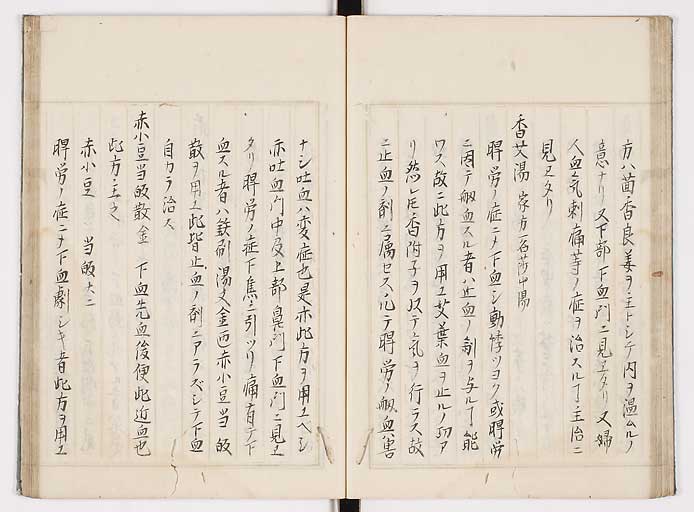 方ハ茴香良姜ヲ主トシテ内ヲ温ムルノ
意ナリ又下部下血門ニ見エタリ又婦
人血気刺痛等ノ症ヲ治スルヿ主治ニ
見エタリ
香艾湯 家方 一名莎艸湯
脾労ノ症ニメ下血シ動悸ツヨク或脾労
ニ因テ衂血スル者ハ止血ノ剤ヲ与ルヿ能
ワス故ニ此方ヲ用ユ艾葉血ヲ止ルノ功ア
リ然レ𪜈香附子ヲ以テ気ヲ行ラス故
ニ止血ノ剤ニ属セス心テ脾労ノ衂血等
ナシ吐血ハ変症也是亦此方ヲ用ユヘシ
亦吐血門中及上部鼻門下血門ニ見エ
タリ脾労ノ症下焦ニ引ツリ痛有テ下
血スル者ハ鉄刷湯又金匱赤小豆当皈
散ヲ用ユ此皆止血ノ剤ニアラズシテ下血
自カラ治ス
赤小豆当皈散 金 下血先血後便此近血也
此方主之
赤小豆 当皈 大二
脾労ノ症ニメ下血劇シキ者此方ヲ用ユ